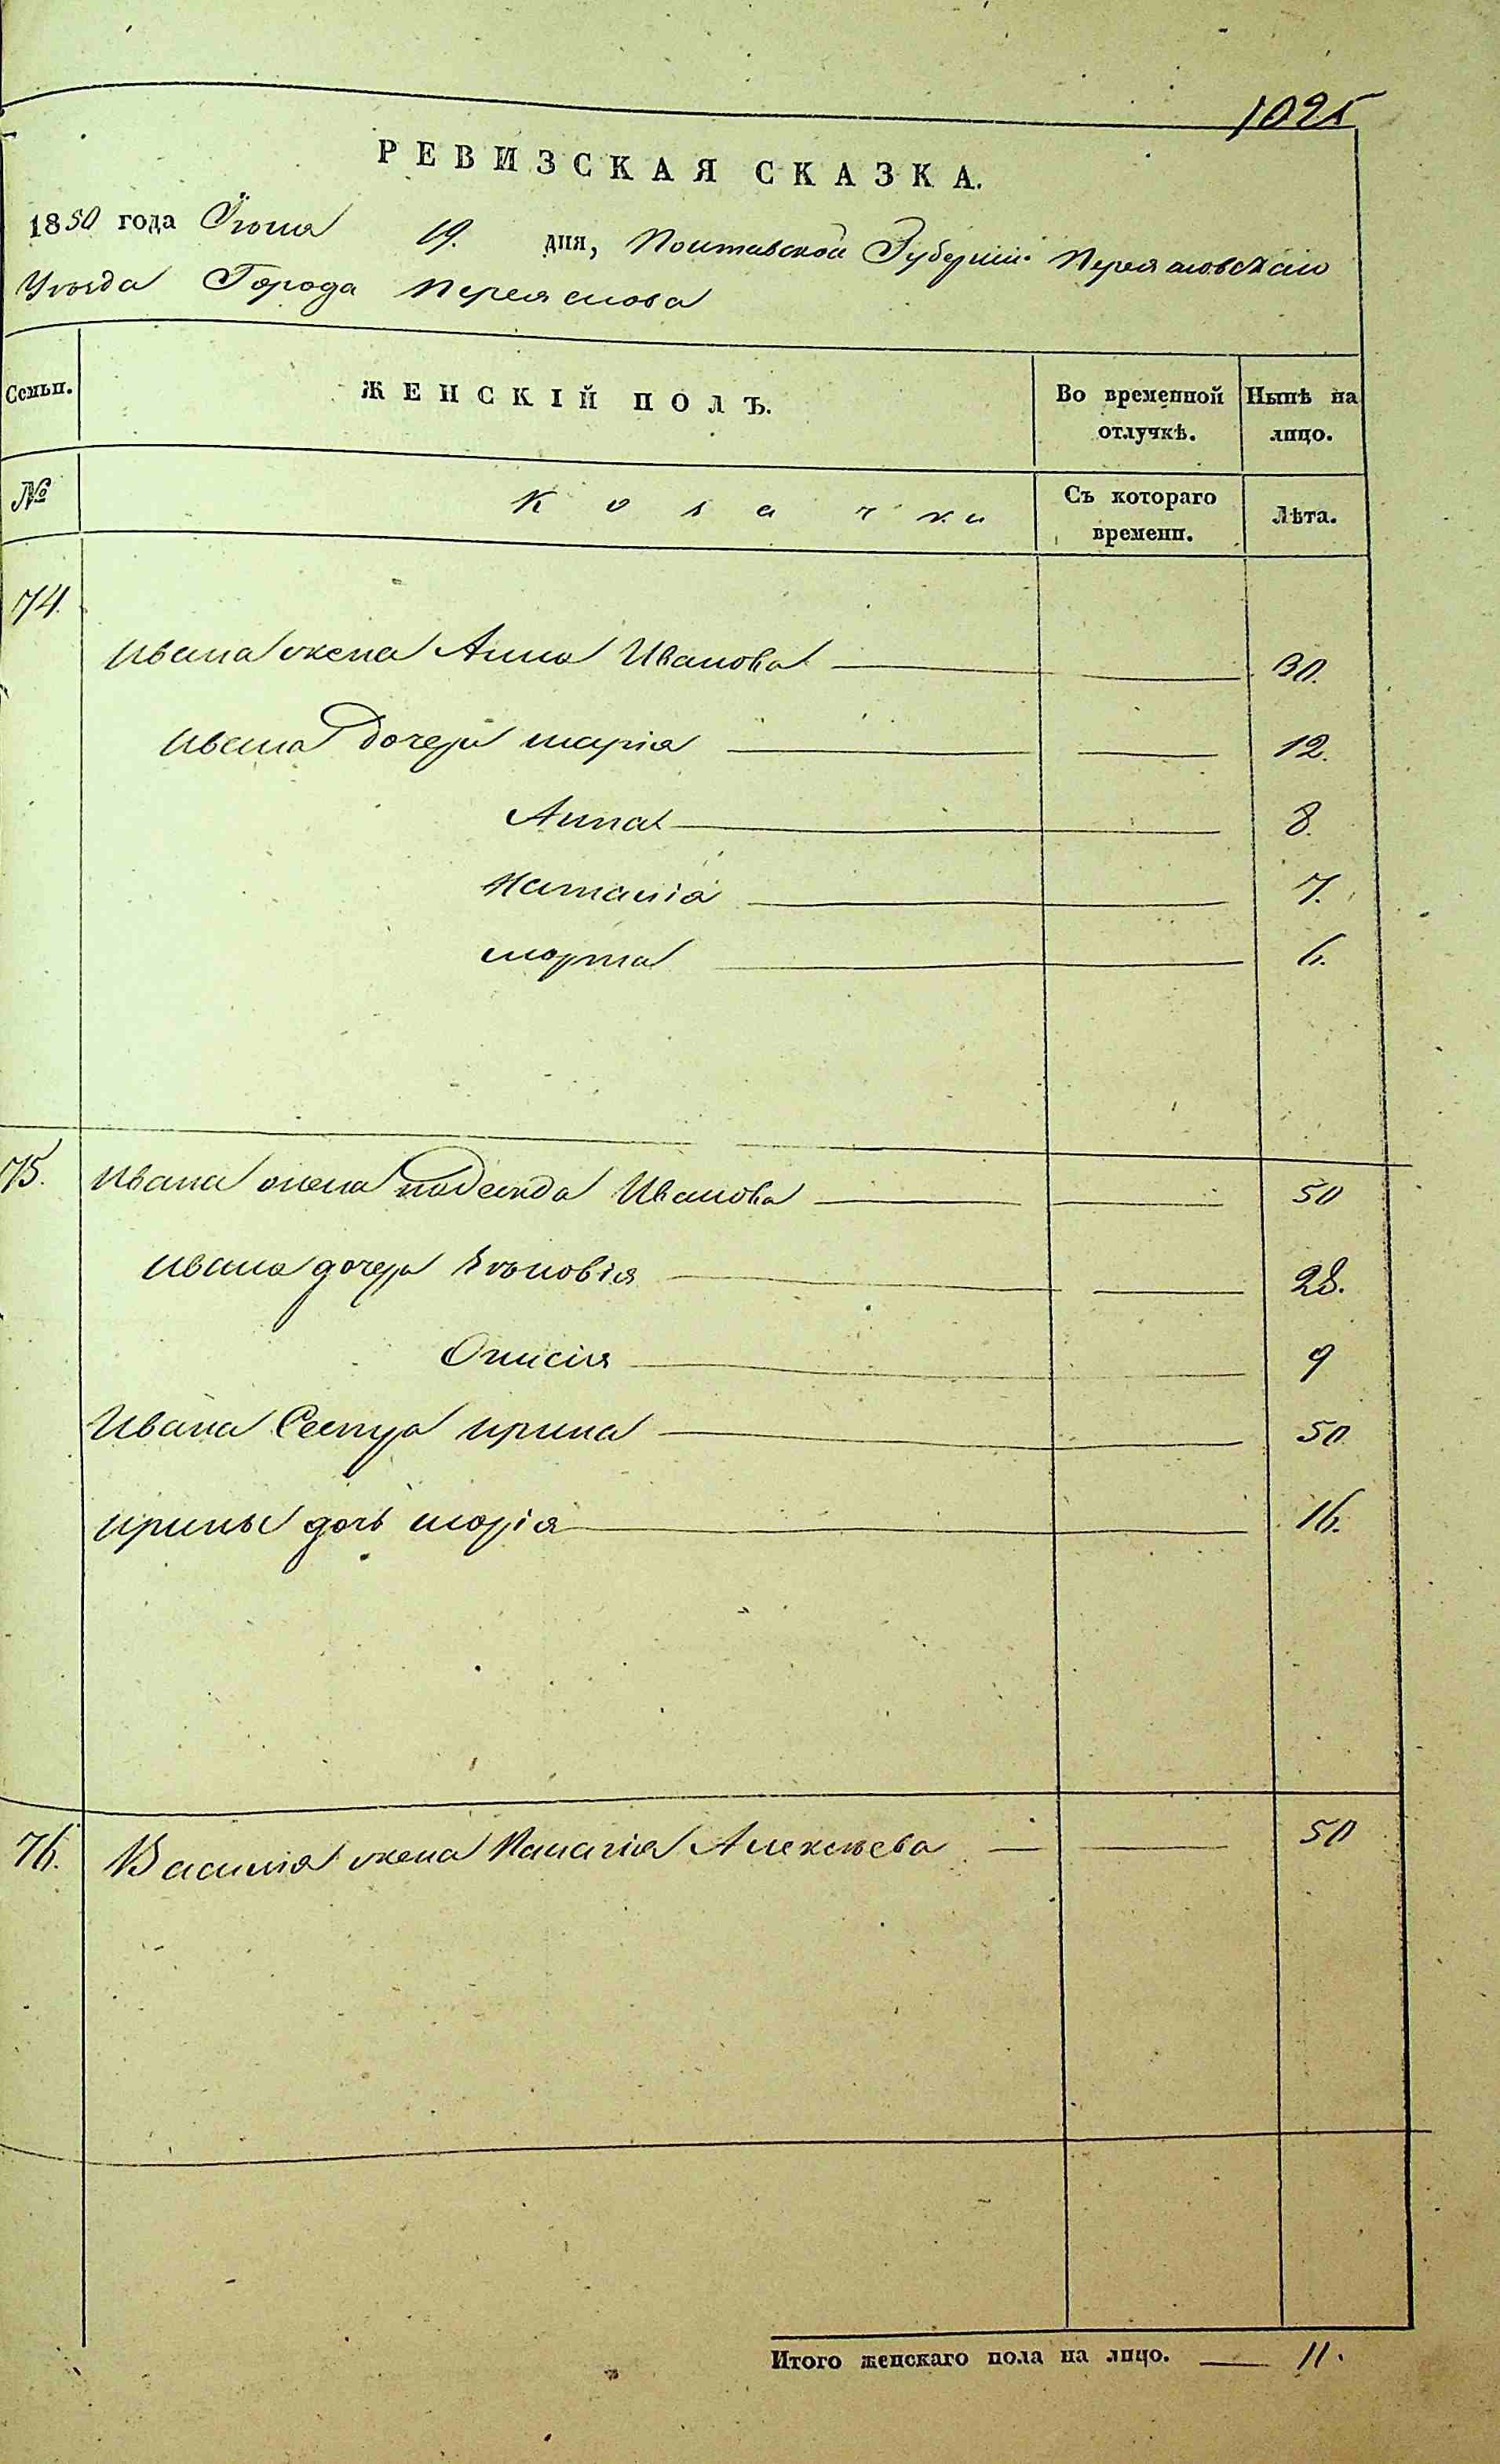 1025
РЕВИЗСКАЯ СКАЗКА.
1850 года Іюня 19. дня, Полтавской Губерніи Переяславскаго
Уѣзда Города Переяслова
Семьи. ЖЕНСКІЙ ПОЛЪ. Во временной отлучкѣ. Нынѣ на лицо.
№ Козачки Съ котораго времени. Лѣта.
74.
Ивана жена Анна Иванова 30.
Ивана дочери марія 12.
Анна 8.
Наталія 7.
марта 6.
75. Ивана жена надежда Иванова 50
Ивана дочери Зѣновія 28.
Онисія 9
Ивана Сестра ирина 50
ирины дочь марія 16.
76. Василія жена Палагія Алексѣева 50
Итого женскаго пола на лицо. 11.